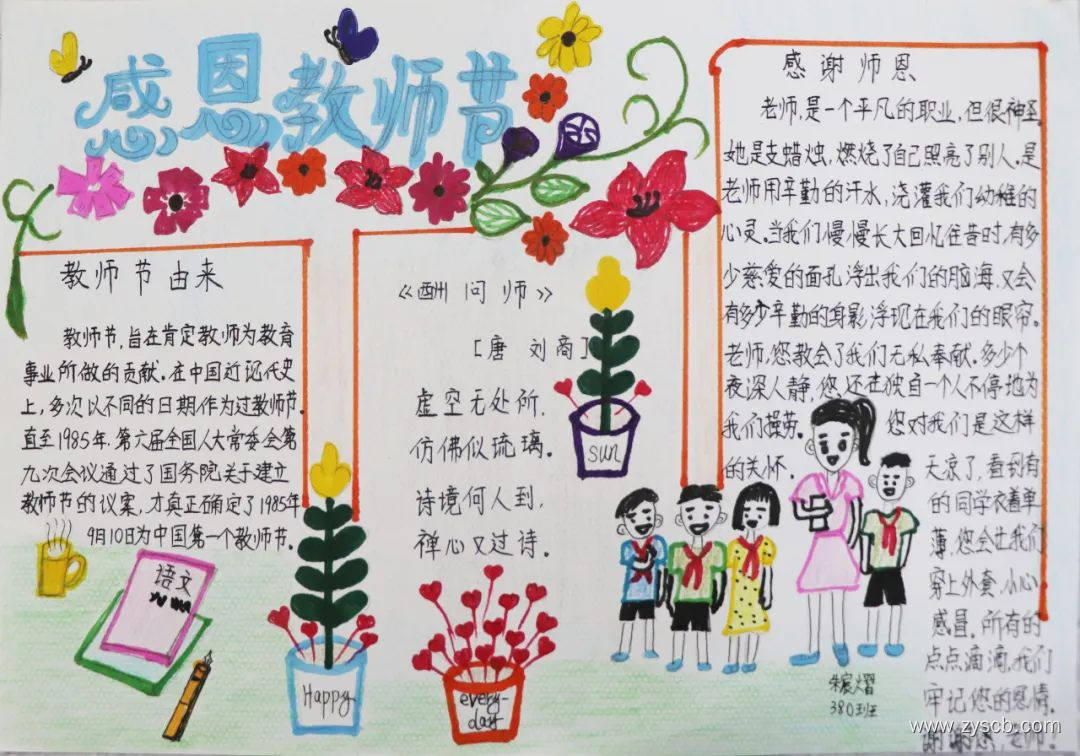 感恩教师节
教师节由来
教师节,旨在肯定教师为教育
事业所做的贡献.在中国近现代史
上,多次以不同的日期作为过教师节.
直至1985年,第六届全国人大常委会第
九次会议通过了国务院关于建立
教师节的议案,才真正确定了1985年
9月10日为中国第一个教师节.
《酬问师》
[唐 刘商]
虚空无处所,
仿佛似琉璃。
诗境何人到,
禅心又过诗。
感谢师恩
老师,是一个平凡的职业,但很神圣.
她是支蜡烛,燃烧了自己照亮了别人.是
老师用辛勤的汗水,浇灌我们幼稚的
心灵.当我们慢慢长大回忆往昔时,有多
少慈爱的面孔浮出我们的脑海.又会
有多少辛勤的身影浮现在我们的眼帘。
老师,您教会了我们无私奉献.多少个
夜深人静,您还在独自一个人不停地为
我们操劳。您对我们是这样
的关怀.天凉了,看到有
的同学衣着单
薄,您会让我们
穿上外套.小心
感冒.所有的
点点滴滴,我们
牢记您的恩情.
谢谢您 老师!
语文
Happy
every-
day
sun
380班
www.zyscb.com